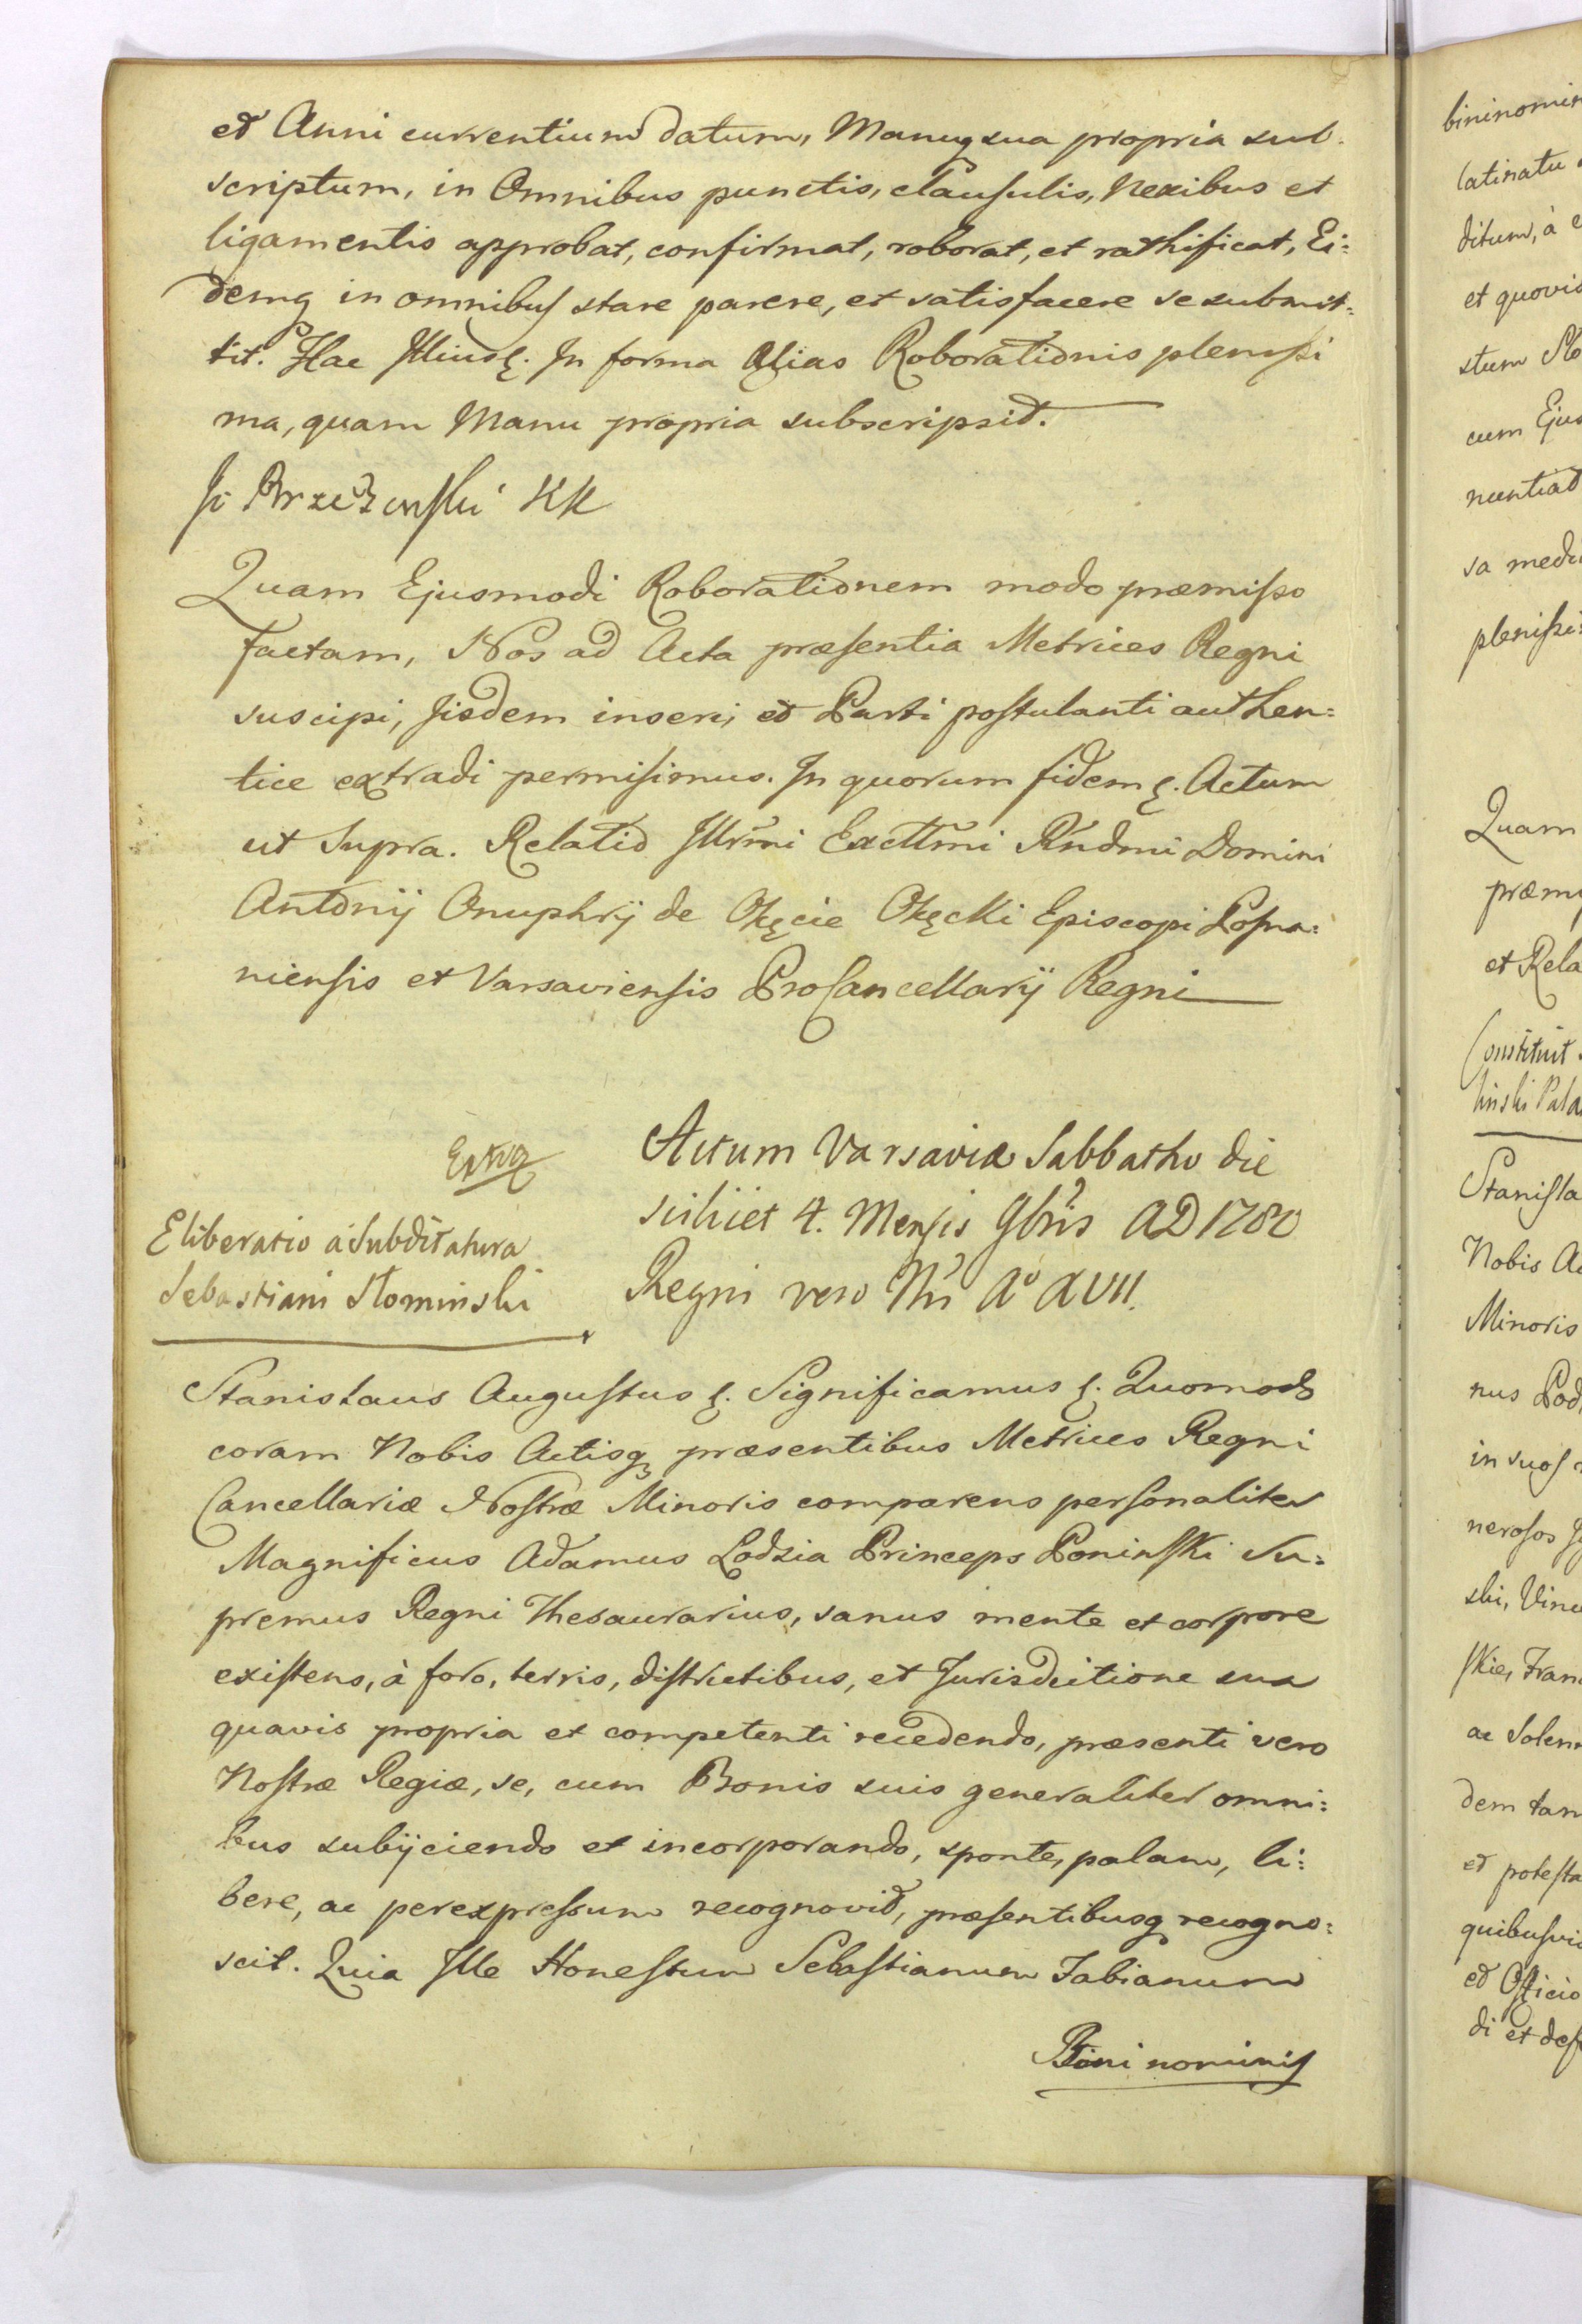 et Anni currentium datum, Manuq sua propria sub=
scriptum, in Omnibus punctis, clausulis, Nexibus et
ligamentis approbat, confirmat, roborat, et rathificat, Ei=
demq in omnibus stare parere, et satisfacere se submit=
tit. Hac Illius &. In forma Alias Roborationis plenissi
ma, quam Manu propria subscripsit.
Quam Ejusmodi Roborationem modo præmisso
factam, Nos ad Acta præsentia Metrices Regni
suscipi, Iisdem inseri, et Parti postulanti authen=
tice extradi permisimus. In quorum fidem &. Actum
ut Supra. Relatio Illrmi Excllmi Rndmi Domini
Antonij Onuphrij de Okęcie Okęcki Episcopi Posna=
niensis et Varsaviensis ProCancellarij Regni
Actum Varsaviæ Sabbatho die
scilicet 4. Mensis 9bris AD 1780
Regni vero Nri Ao XVII.
Eliberatio à Subditatura
Sebastiani Słominski
Stanislaus Augustus &. Significamus &. Quomodo
coram Nobis Actisq præsentibus Metrices Regni
Cancellariæ Nostræ Minoris comparens personaliter
Magnificus Adamus Lodzia Princeps Poninski Su=
premus Regni Thesaurarius, sanus mente et corpore
existens, à foro, terris, districtibus, et Jurisdictione sua
quavis propria et competenti recedendo, præsenti vero
Nostræ Regiæ, se, cum Bonis suis generaliter omni=
bus subijciendo et incorporando, sponte, palam, li=
bere, ac per expressum recognovit, præsentibusq recogno=
scit. Quia Ille Honestum Sebastianum Fabianum
Bini nominis
bininomin
latinatu
ditum, à e
et quovis
stum Sło
cum Ejus
nuntiat
sa medi
plenissi=
Quam
præmi
et Rela
Constituit
linski Pala
Stanisla
Nobis Ac
Minoris
nus Pod
in suos
nerosos
ski, Vinc
skie, Fran
ac Solen
dem tam
et potesta
quibusvis
et Officio
di et def